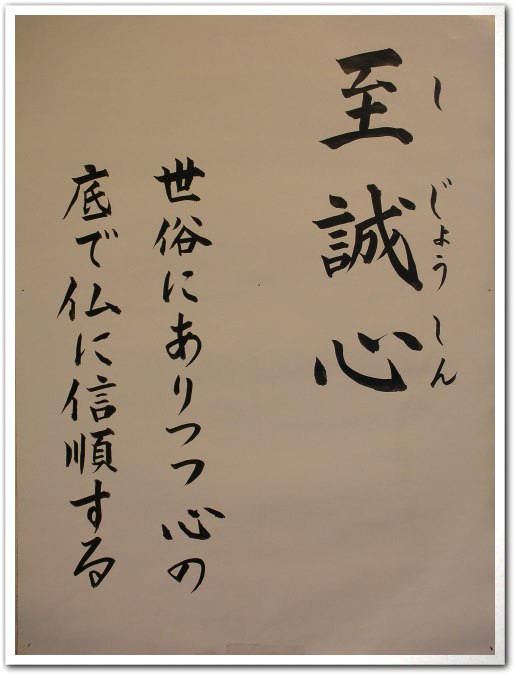 至誠心
しじょうしん
世俗にありつつ心の
底で仏に信順する